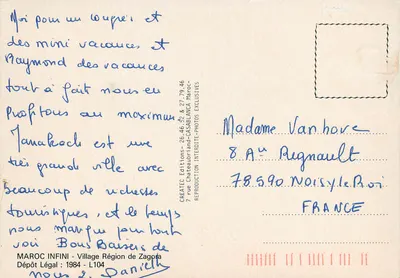 Moi pour un congrès et
des mini vacances et
Raymond des vacances
tout à fait nous en
profitons au maximum
Marrakech est une
très grande ville avec
beaucoup de richesses
touristiques, et le temps
nous manque pour tout
voir Bons Baisers de
nous 2. Danielle
MAROC INFINI - Village Région de Zagora
Dépôt Légal : 1984 - L104
CREATEC Editions- 26.46.52 & 27.79.46
7 rue Chateaubriand-CASABLANCA Maroc-
REPRODUCTION INTERDITE-PHOTOS EXCLUSIVES
Madame Vanhove
8 Av Regnault
78590 NOISY le Roi
FRANCE